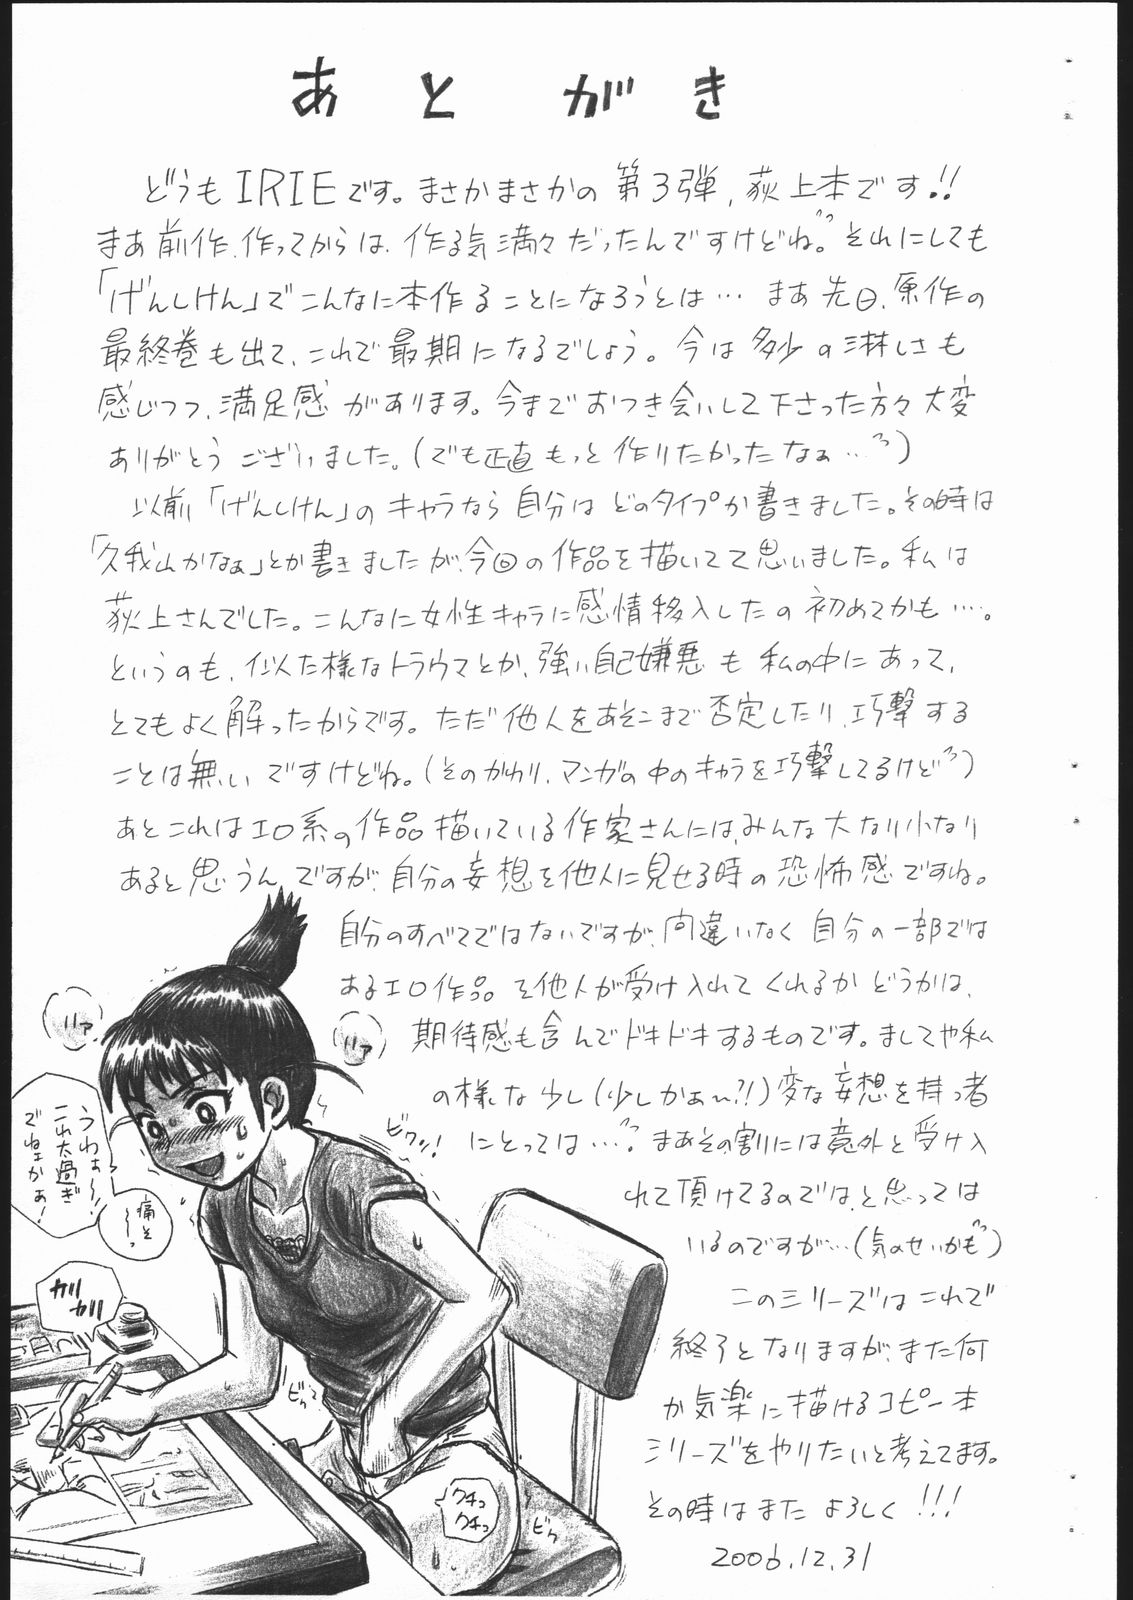 あとがき
どうもIRIEです。まさかまさかの第3弾、荻上本です!!
まあ前作、作ってからは、作る気満々だったんですけどね。それにしても
「げんしけん」でこんなに本作ることになろうとは… まあ先日、原作の
最終巻も出て、これで最期になるでしょう。今は多少の淋しさも
感じつつ、満足感があります。今までおつき会いして下さった方々大変
ありがとうございました。(でも正直もっと作りたかったなぁ…)
以前「げんしけん」のキャラなら自分はどのタイプか書きました。その時は
「久我山かなぁ」とか書きましたが、今回の作品を描いてて思いました。私は
荻上さんでした。こんなに女性キャラに感情移入したの初めてかも…。
というのも、似た様なトラウマとか、強い自己嫌悪も私の中にあって、
とてもよく解ったからです。ただ他人をあそこまで否定したり、巧撃する
ことは無いですけどね。(そのかわり、マンガの中のキャラを巧撃してるけど)
あとこれはエロ系の作品描いている作家さんには、みんな大なり小なり
あると思うんですが、自分の妄想を他人に見せる時の恐怖感ですね。
自分のすべてではないですが、間違いなく自分の一部では
あるエロ作品を他人が受け入れてくれるかどうかは、
期待感も含んでドキドキするものです。ましてや私
の様な少し(少しかぁ〜?!)変な妄想を持つ者
にとっては…。まあその割には意外と受け入
れて頂けてるのでは、と思っては
いるのですが…(気のせいかも)
このシリーズはこれで
終了となりますが、また何
か気楽に描けるコピー本
シリーズをやりたいと考えてます。
その時はまたよろしく!!!
2006.12.31
ハァ
ハァ
うわぁ〜!
これ太過ぎ
でねェかぁ!
痛そ
〜〜っ
カリ
カリ
ビクッ!
ビクッ
クチュッ
クチュッ
ビク